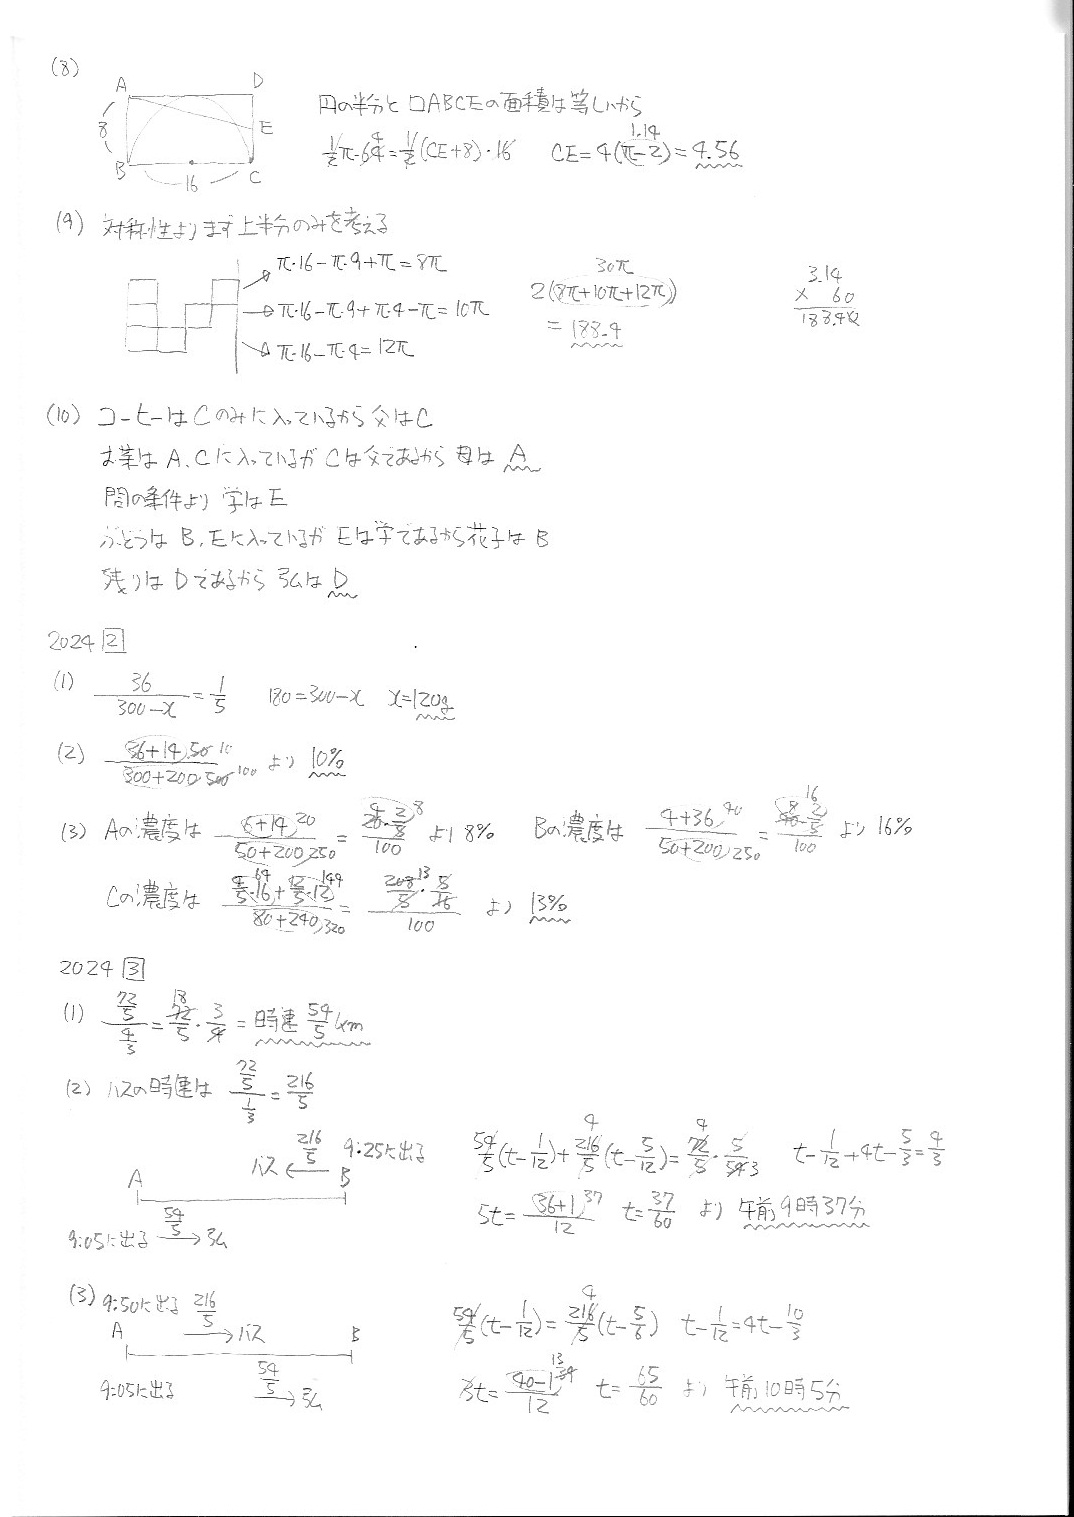 (8)
A D
8 E
B 16 C
円の半分と□ABCEの面積は等しいから
1/2π・64=1/2(CE+8)・16 CE=4(π-2)=4.56
1.14
(9) 対称性よりまず上半分のみを考える
π・16-π・9+π=8π
π・16-π・9+π・4-π=10π
π・16-π・4=12π
30π
2(8π+10π+12π)
=188.4
3.14
× 60
188.40
(10) コーヒーはCのみに入っているから父はC
お茶はA,Cに入っているがCは父であるから母はA
問の条件より学はE
ぶどうはB,Eに入っているがEは学であるから花子はB
残りはDであるから弘はD
2024 2
(1) 36/(300-x)=1/5 180=300-x x=120g
(2) (36+14)/(300+200) 50 10 500 100 より 10%
(3) Aの濃度は (6+14)/(50+200) 20 250 = (20・2/5)/100 8 より8% Bの濃度は (4+36)/(50+200) 40 250 = (40・2/5)/100 16 より16%
Cの濃度は (4/5・16+12/5・12)/(80+240) 64 144 320 = (208/5・5/16)/100 13 より 13%
2024 3
(1) (72/5)/(4/3)=72/5・3/4 18 =時速54/5km
(2) バスの時速は (72/5)/(1/3)=216/5
バス 216/5 9:25に出る
A B
9:05に出る 54/5 弘
54/5(t-1/12)+216/5(t-5/12)=72/5・5/54 4 4 3 t-1/12+4t-5/3=4/3
5t=(36+1)/12 37 t=37/60 より 午前9時37分
(3) 9:50に出る 216/5 バス
A B
9:05に出る 54/5 弘
54/5(t-1/12)=216/5(t-5/6) 4 t-1/12=4t-10/3
3t=(40-1)/12 39 13 t=65/60 より 午前10時5分